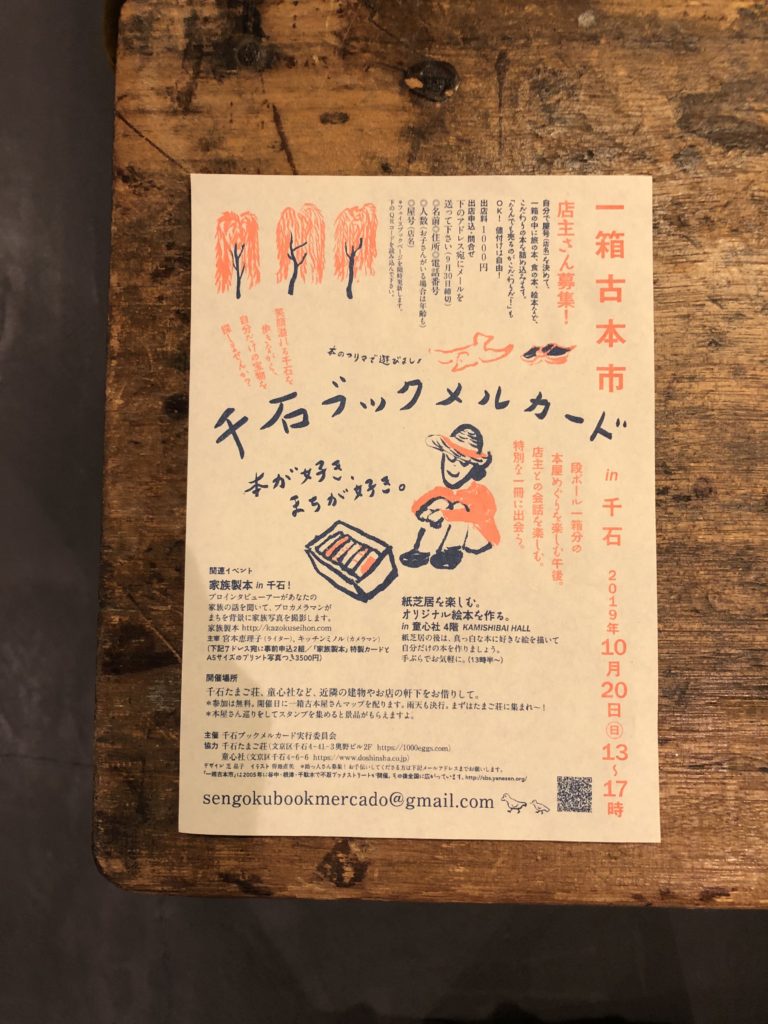 一箱古本市 in 千石 2019年10月20日(日)13〜17時
店主さん募集!
自分で屋号(店名)を決めて、
一箱の中に旅の本、食の本、絵本など、
こだわりの本を詰め込みます。
OK! 値付けは自由!
出店料 1000円
出店申込・問合せ
下のアドレス宛にメールを
送って下さい(9月30日締切)
◎名前◎住所◎電話番号
◎人数(お子さんがいる場合は年齢も)
◎屋号(店名)
*フェイスブックページを随時更新します。
下のQRコードを読み込んで下さい。
笑顔溢れる千石を
歩きながら、
自分だけの宝物を
探しませんか?
本のフリマで遊びましょ
千石ブックメルカード
本が好き、
まちが好き。
段ボール一箱分の
本屋めぐりを楽しむ午後。
店主との会話を楽しむ。
特別な一冊に出会う。
関連イベント
家族製本 in 千石!
プロインタビューアーがあなたの
家族の話を聞いて、プロカメラマンが
まちを背景に家族写真を撮影します。
家族製本 http://kazokuseihon.com
主宰 宮本恵理子(ライター)、キッチンミノル(カメラマン)
(下記アドレス宛に事前申込2組/「家族製本」特製カードと
A5サイズのプリント写真つき3500円)
紙芝居を楽しむ。
オリジナル絵本を作る。
in 童心社 4階 KAMISHIBAI HALL
紙芝居の後は、真っ白な本に好きな絵を描いて
自分だけの本を作りましょう。
手ぶらでお気軽に。(13時半〜)
開催場所
千石たまご荘、童心社など、近隣の建物やお店の軒下をお借りして。
*参加は無料。開催日に一箱古本屋さんマップを配ります。雨天も決行。まずはたまご荘に集まれ〜!
*本屋さん巡りをしてスタンプを集めると景品がもらえますよ。
主催 千石ブックメルカード実行委員会
協力 千石たまご荘(文京区千石4-41-3奥野ビル2F https://1000eggs.com)
童心社(文京区千石4-6-6 https://www.doshinsha.co.jp)
*助っ人さん募集!お手伝いしてくださる方は下記メールアドレスまでお願いします。
「一箱古本市」は2005年に谷中・根津・千駄木で不忍ブックストリートが開催。その後全国に広がっています。http://sbs.yanesen.org/
sengokubookmercado@gmail.com